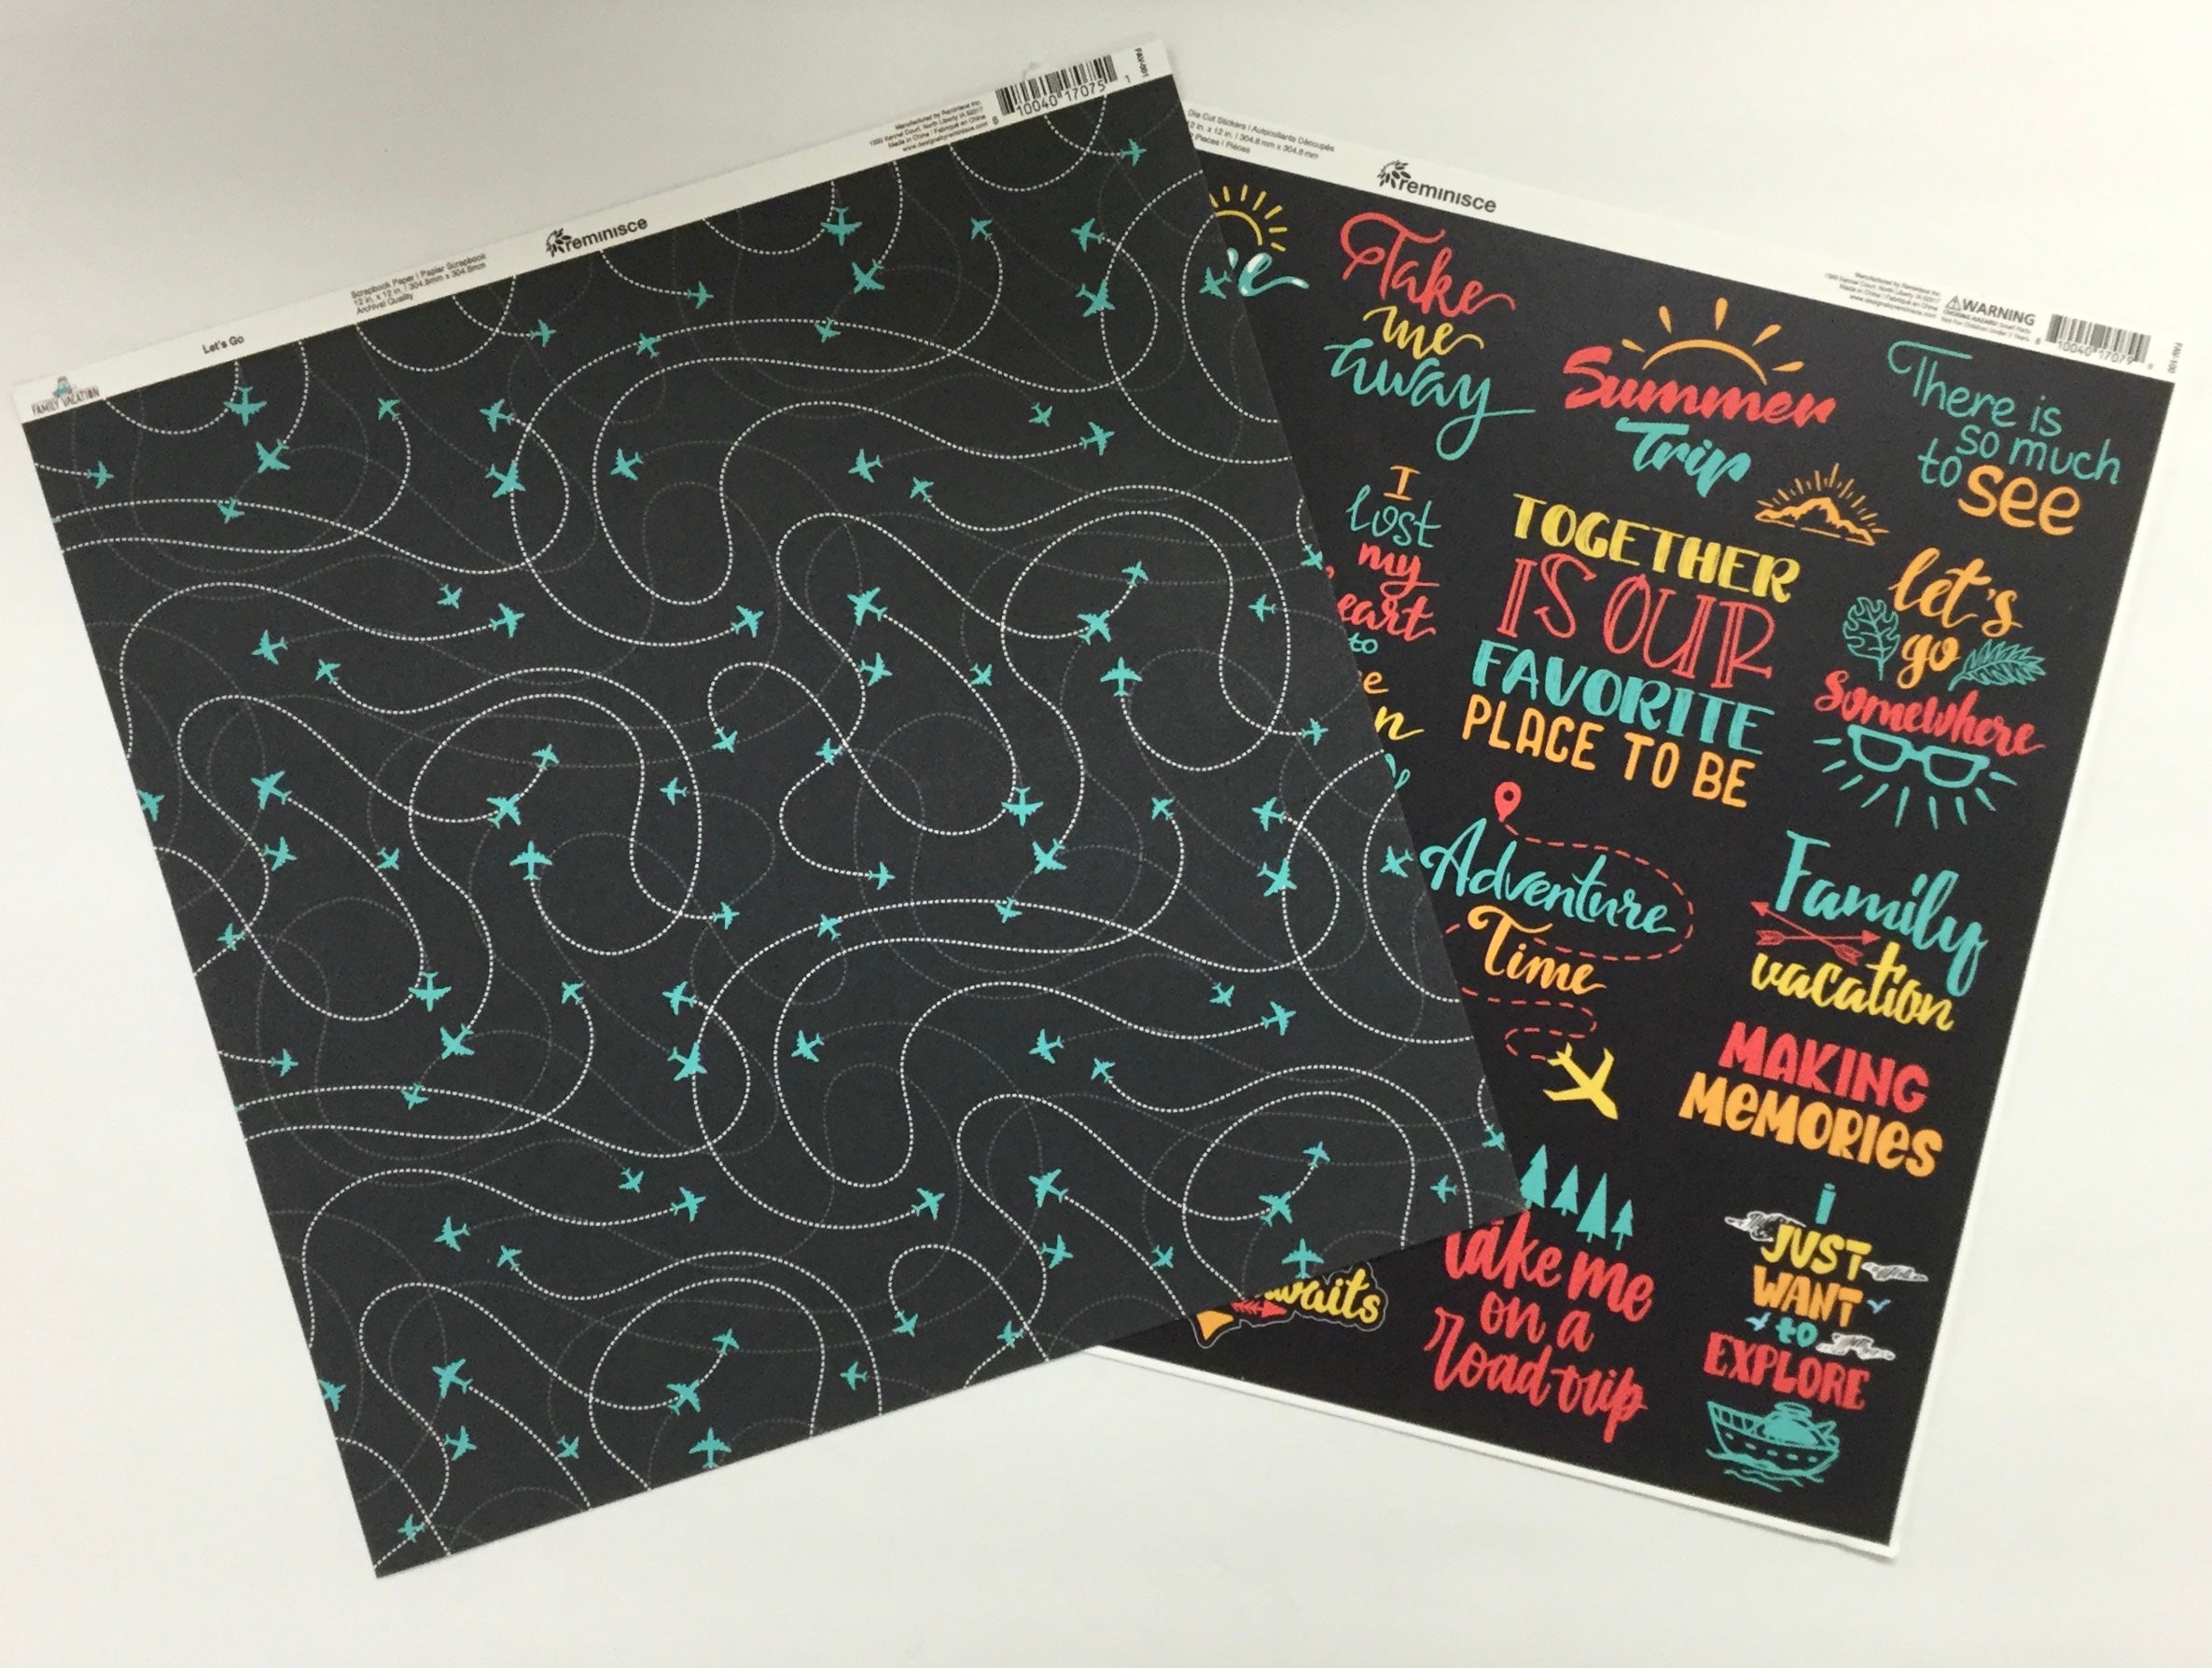 FAMILY VACATION
Let's Go
Scrapbook Paper | Papier Scrapbook
12 in. x 12 in. | 304.8mm x 304.8mm
Archival Quality
reminisce
Manufactured by Reminisce Inc.
Made in China | Fabriqué en Chine
www.designsbyreminisce.com
8 10040 17075 1
FAV-001
Die Cut Stickers | Autocollants Découpés
12 in. x 12 in. | 304.8 mm x 304.8 mm
Pieces | Pièces
reminisce
Manufactured by Reminisce Inc.
Made in China | Fabriqué en Chine
www.designsbyreminisce.com
WARNING
CHOKING HAZARD: Small Parts
Not For Children Under 3 Years
8 10040 17079
FAV-100
Take
me
away
Summer
Trip
There is
so much
to see
I
lost
my
eart
to
TOGETHER
IS OUR
FAVORITE
PLACE TO BE
let's
go
Somewhere
Adventure
Time
Family
vacation
MAKING
MEMORIES
waits
Take me
on a
road trip
i
JUST
WANT
to
EXPLORE